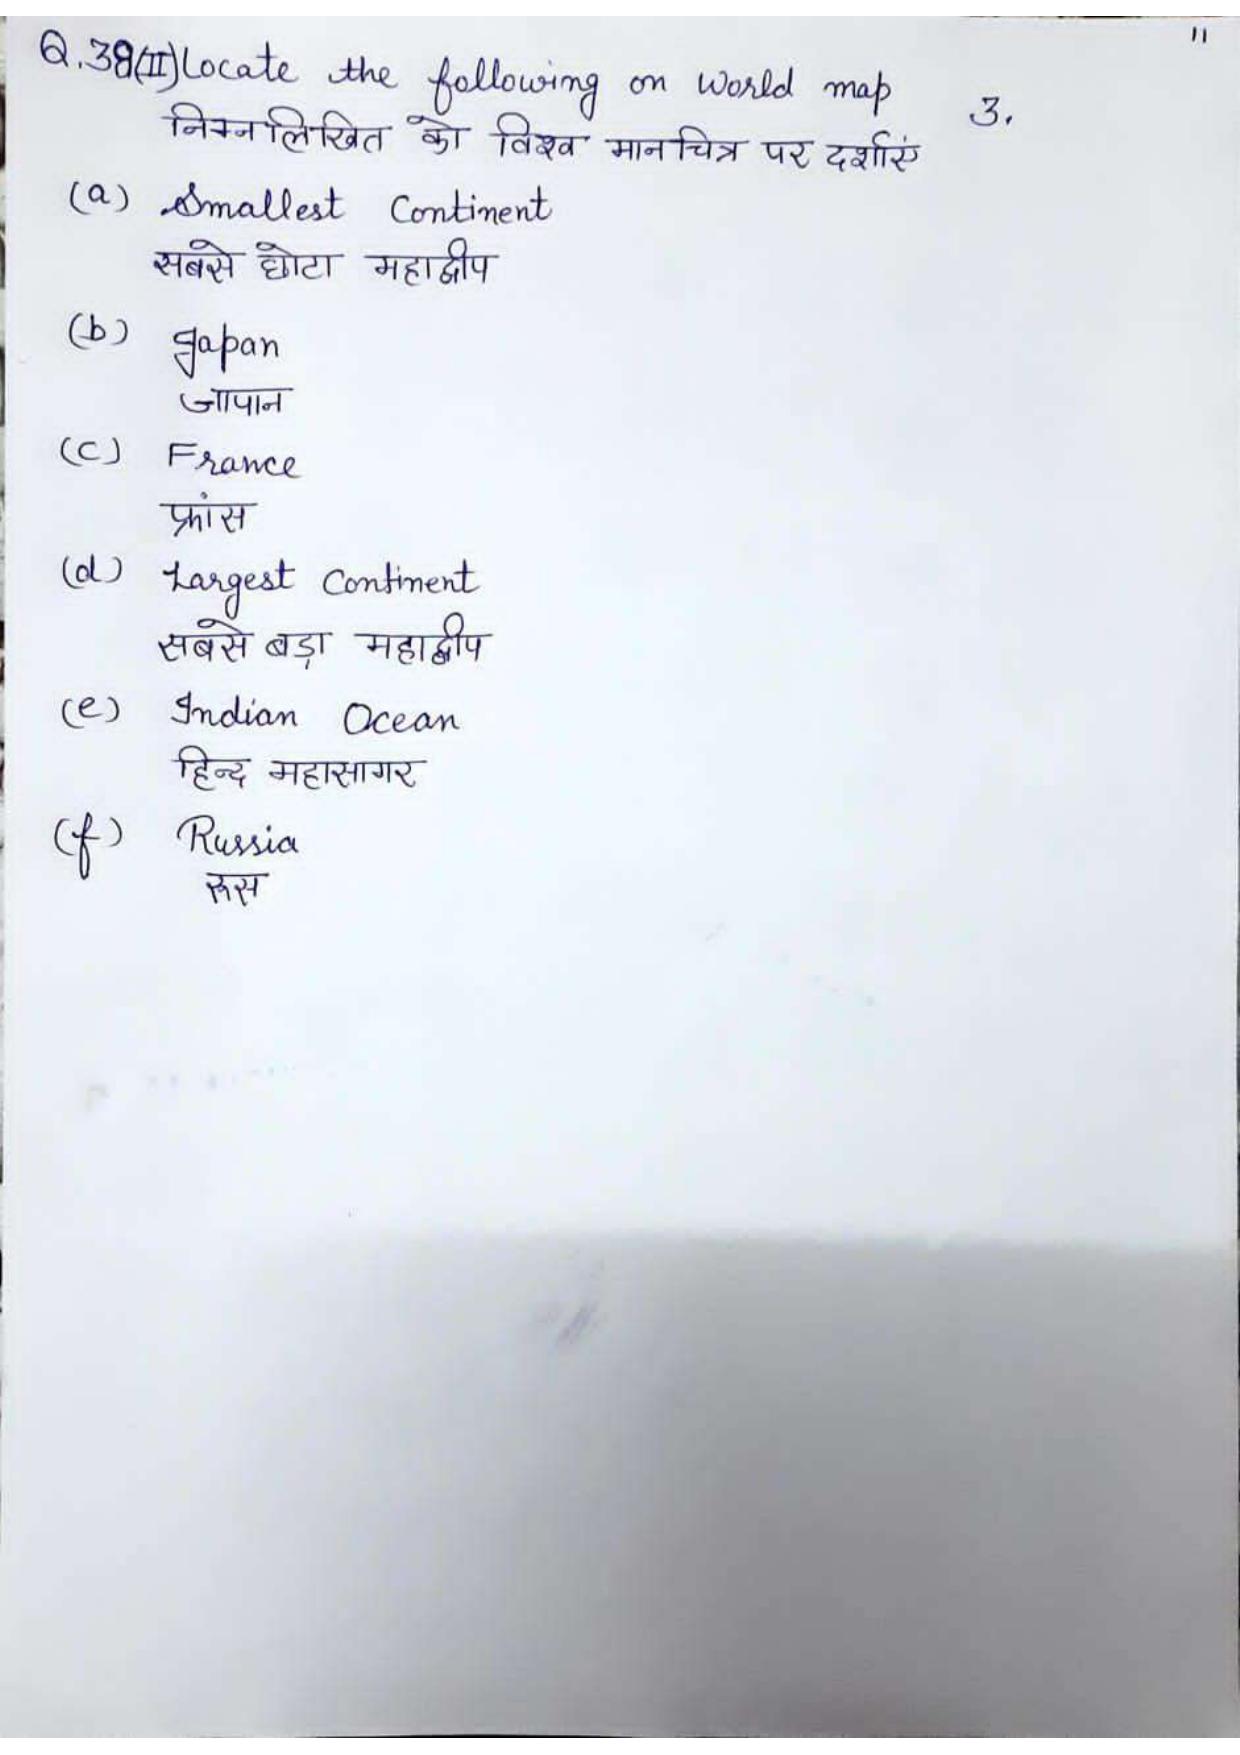 11
Q.38(II) Locate the following on World map 3.
निम्नलिखित को विश्व मानचित्र पर दर्शाएं
(a) Smallest Continent
सबसे छोटा महाद्वीप
(b) Japan
जापान
(c) France
फ्रांस
(d) Largest Continent
सबसे बड़ा महाद्वीप
(e) Indian Ocean
हिन्द महासागर
(f) Russia
रूस